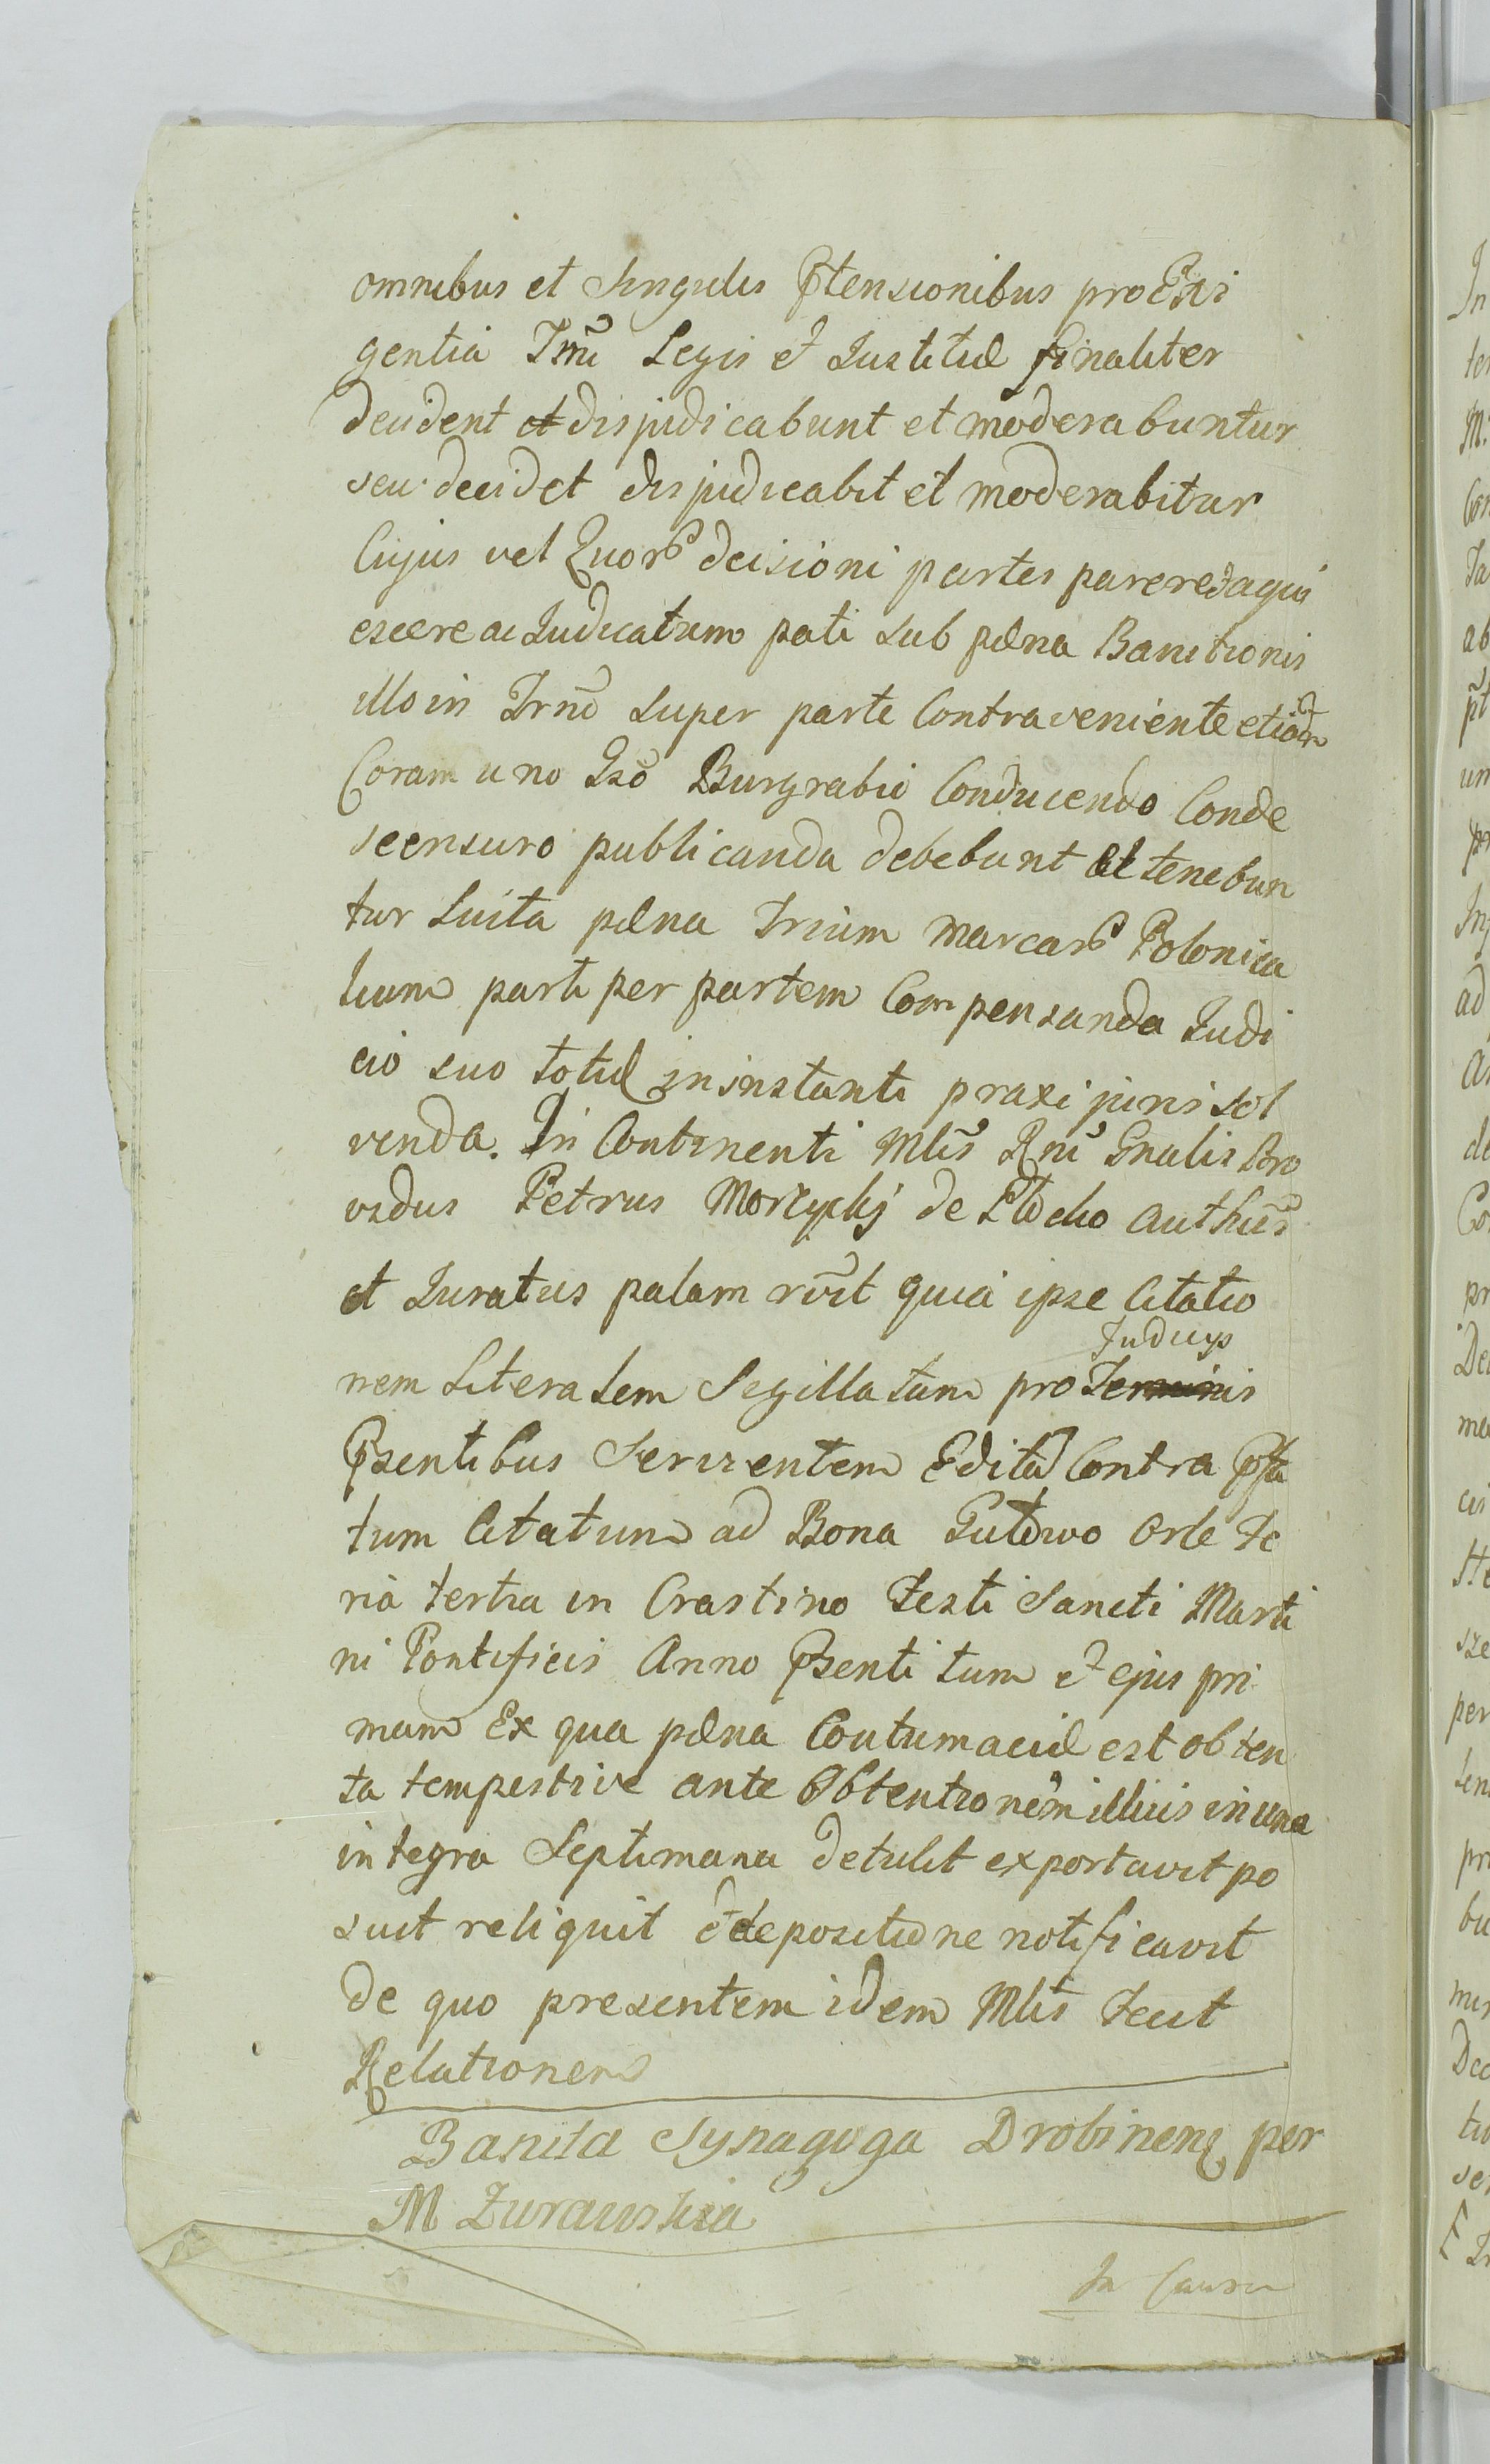 omnibus et Singulis Ptensionibus pro Exi
gentia Trni Legis et Justitiæ finaliter
decident et disjudicabunt et moderabuntur
seu decidet disjudicabit et moderabitur
Cujus vel Quor decisioni partes parere et acqui
escere ac Judicatum pati sub pæna Banitionis
illo in Trno super parte Contraveniente etiam
Coram uno Gso Burgrabio Conducendo Conde
scensuro publicanda debebunt et tenebun
tur Luita pæna trium marcar Polonica
lium parti per partem Compensanda Judi
cio suo toties in instanti praxi juris sol
venda. In Continenti Mlis Rni Gnalis Pro
vidus Petrus de Płocko Authus
et Juratus palam rvit quia ipse Citatio
nem Literalem Sigillatam pro Judicys
Psentibus Servientem Editã Contra Psta
tum Citatum ad Bona Gutowo Orle Fe
ria tertia in Crastino Festi Sancti Marti
ni Pontificis Anno Psenti tum et ejus pri
mam Ex qua pæna Contumaciæ est obten
ta tempestive ante Obtentionem illius in una
integra Septimana detulit exportavit po
suit reliquit et de positione notificavit
de quo presentem idem Mlis fecit
Relationem
Banita Synagoga Drobinens per
M Zurawska
In Causa